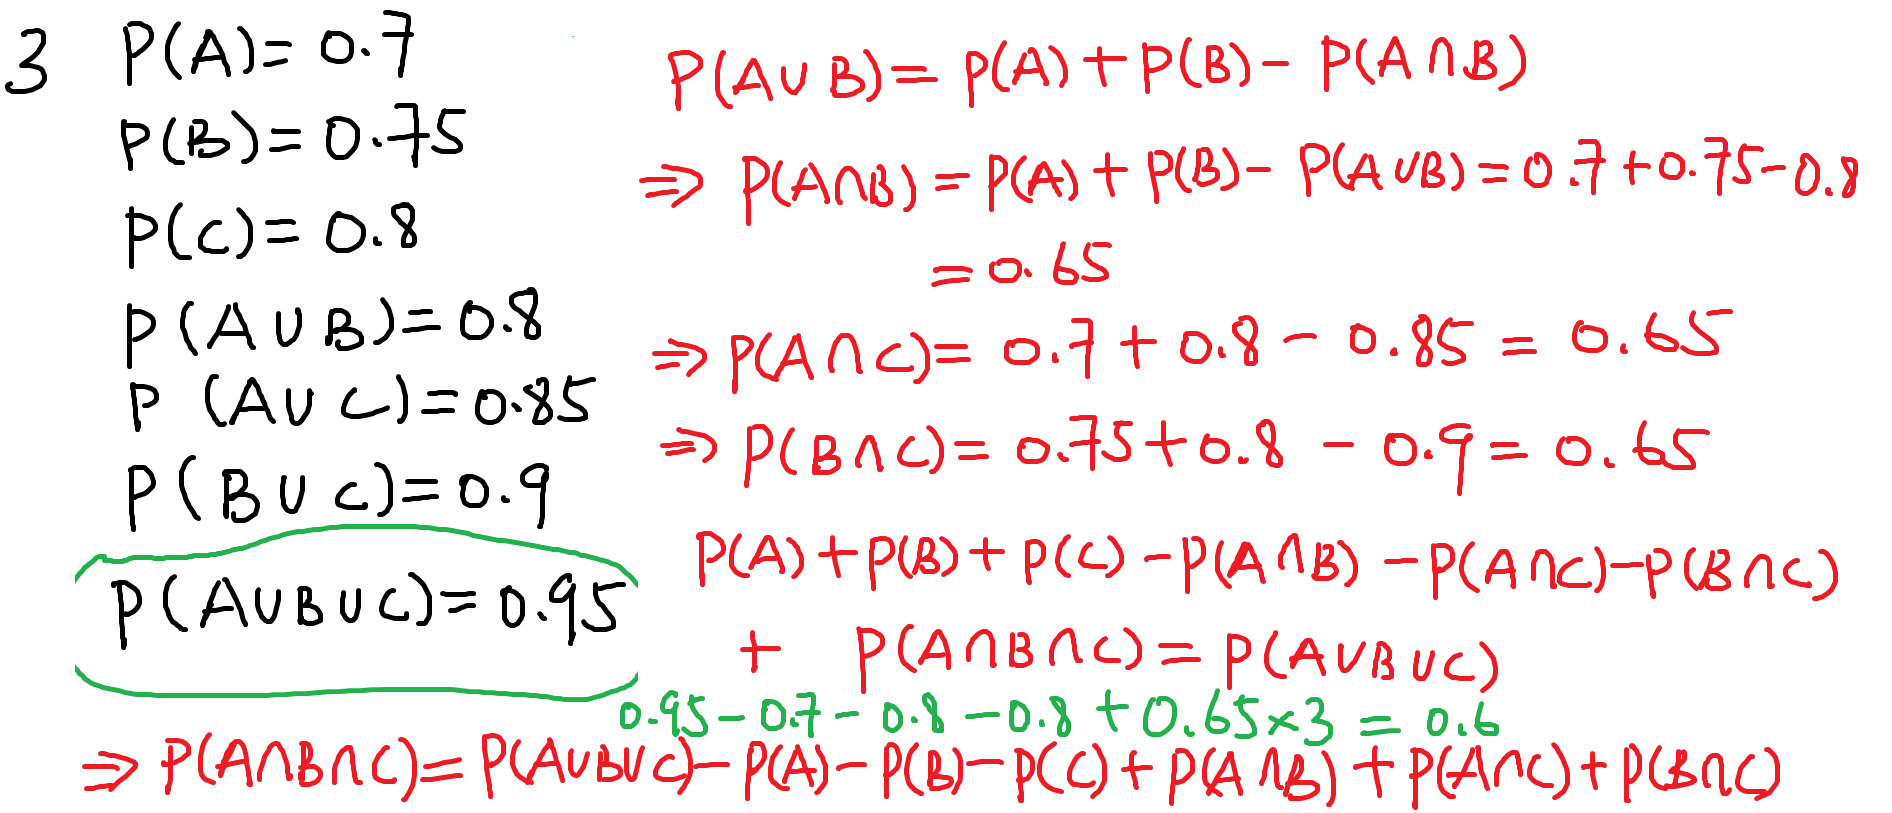 3 P(A)= 0.7
P(B)= 0.75
P(C)= 0.8
P(A∪B)= 0.8
P(A∪C)= 0.85
P(B∪C)= 0.9
P(A∪B∪C)= 0.95
P(A∪B)= P(A)+P(B)- P(A∩B)
⇒ P(A∩B)= P(A)+P(B)- P(A∪B)= 0.7+0.75-0.8
= 0.65
⇒ P(A∩C)= 0.7+0.8-0.85 = 0.65
⇒ P(B∩C)= 0.75+0.8-0.9= 0.65
P(A)+P(B)+P(C)-P(A∩B)-P(A∩C)-P(B∩C)
+ P(A∩B∩C)= P(A∪B∪C)
0.95-0.7-0.8-0.8+0.65×3 = 0.6
⇒ P(A∩B∩C)= P(A∪B∪C)-P(A)-P(B)-P(C)+P(A∩B)+P(A∩C)+P(B∩C)